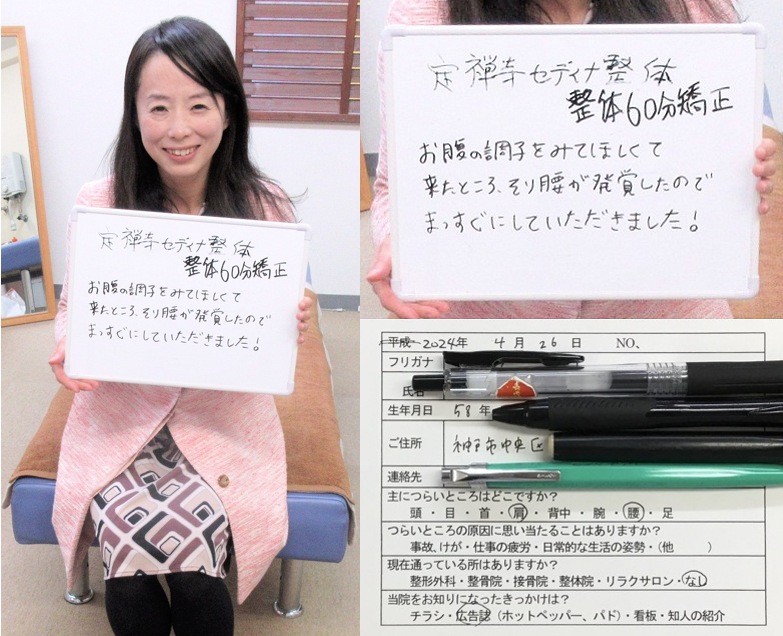 定禅寺セディナ整体
整体60分矯正
お腹の調子をみてほしくて
来たところ、そり腰が発覚したので
まっすぐにしていただきました!
定禅寺セディナ整体
整体60分矯正
お腹の調子をみてほしくて
来たところ、そり腰が発覚したので
まっすぐにしていただきました!
平成 2024年 4月 26日 NO、
フリガナ
氏名
生年月日 58年
ご住所 神戸市中央区
連絡先
主につらいところはどこですか?
頭・目・首・肩・背中・腕・腰・足
つらいところの原因に思い当たることはありますか?
事故、けが・仕事の疲労・日常的な生活の姿勢・(他 )
現在通っている所はありますか?
整形外科・整骨院・接骨院・整体院・リラクサロン・なし
当院をお知りになったきっかけは?
チラシ・広告誌(ホットペッパー、パド)・看板・知人の紹介